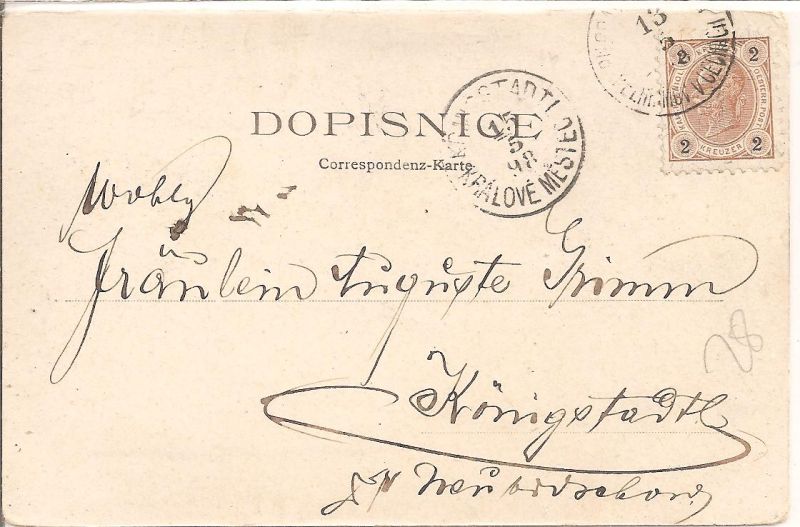 DOPISNICE
Correspondenz-Karte
KÖNIGSTADTL
15
5
98
KRÁLOVÉ MĚSTEC
13
2 2
KREUZER
2 2
Wohlg
Fräulein Auguste Grimm
Königstadtl
28